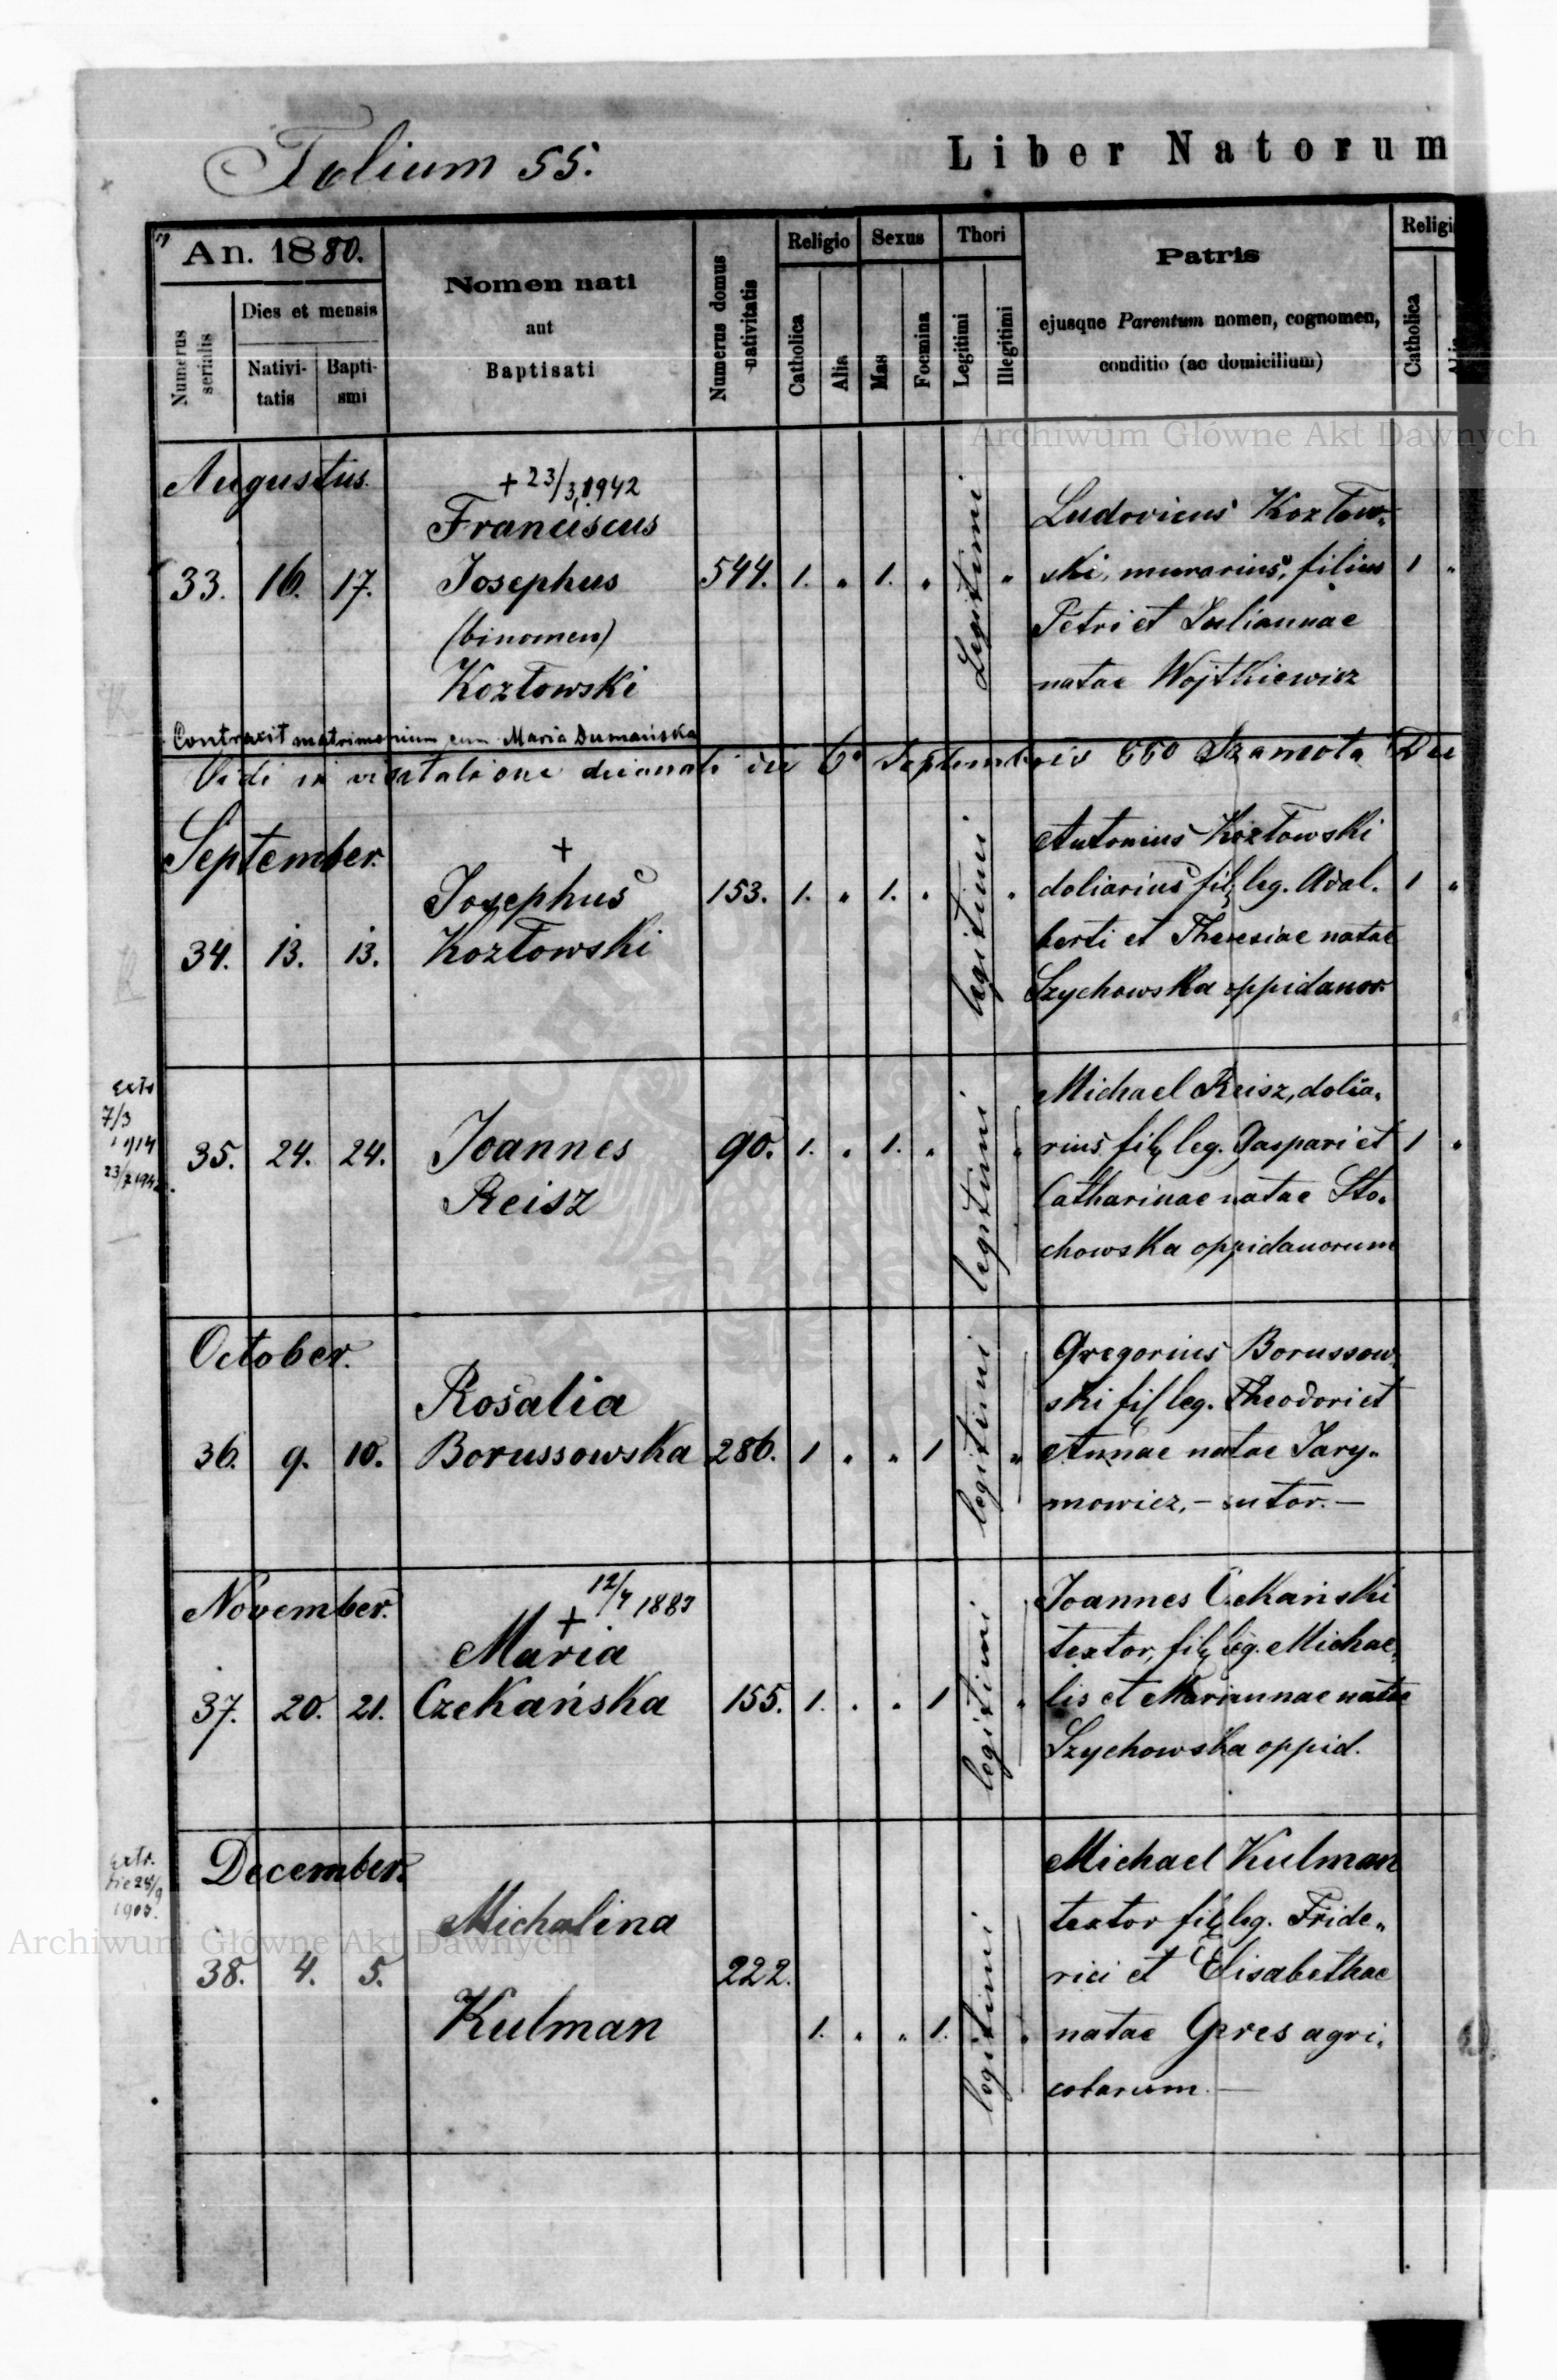 Folium 55.
Liber Natorum
An. 1880.
Numerus serialis
Dies et mensis
Nativi-
tatis
Bapti-
smi
Nomen nati
aut
Baptisati
Numerus domus
nativitatis
Religio
Catholica
Alia
Sexus
Mas
Foemina
Thori
Legitimi
Illegitimi
Patris
ejusque Parentum nomen, cognomen,
conditio (ac domicilium)
Religi
Catholica
Archiwum Główne Akt Dawnych
Augustus.
33. 16. 17.
+ 23/3 1942
Franciscus
Josephus
(binomen)
Kozłowski
544. 1. " 1. " Legitimi "
Ludovicus Kozłow-
ski, murarius, filius
Petri et Juliannae
natae Wojtkiewicz
1 "
Contraxit matrimonium cum Maria Dumańska
Vidi in visitatione decanali die 6a Septembris 880 Szamota Dec
September.
34. 13. 13.
+
Josephus
Kozłowski
153. 1. " 1. " legitimi "
Antonius Kozłowski
doliarius fil leg. Adal.
berti et Theresiae natae
Szychowska oppidanor.
1 "
extr
7/3
1914
35. 24. 24.
Joannes
Reisz
90. 1. " 1. " legitimi "
Michael Reisz, dolia,
rius, fil leg. Gaspari et
Catharinae natae Sto,
chowska oppidanorum
1 "
October.
36. 9. 10.
Rosalia
Borussowska
286. 1 " " 1 legitimi "
Gregorius Borussow,
ski fil leg. Theodori et
Annae natae Jary,
mowicz, — sutor. —
November.
37. 20. 21.
+ 12/7 1883
Maria
Czekańska
155. 1. " " 1 legitimi "
Joannes Czekański
textor, fil leg. Michae,
lis et Mariannae natae
Szychowska oppid.
extr.
die 28/9
December.
38. 4. 5.
Michalina
Kulman
222.
1. " " 1. legitimi "
Michael Kulman
textor fil leg. Fride,
rici et Elisabethae
natae Gres agri,
colarum. —
Archiwum Główne Akt Dawnych